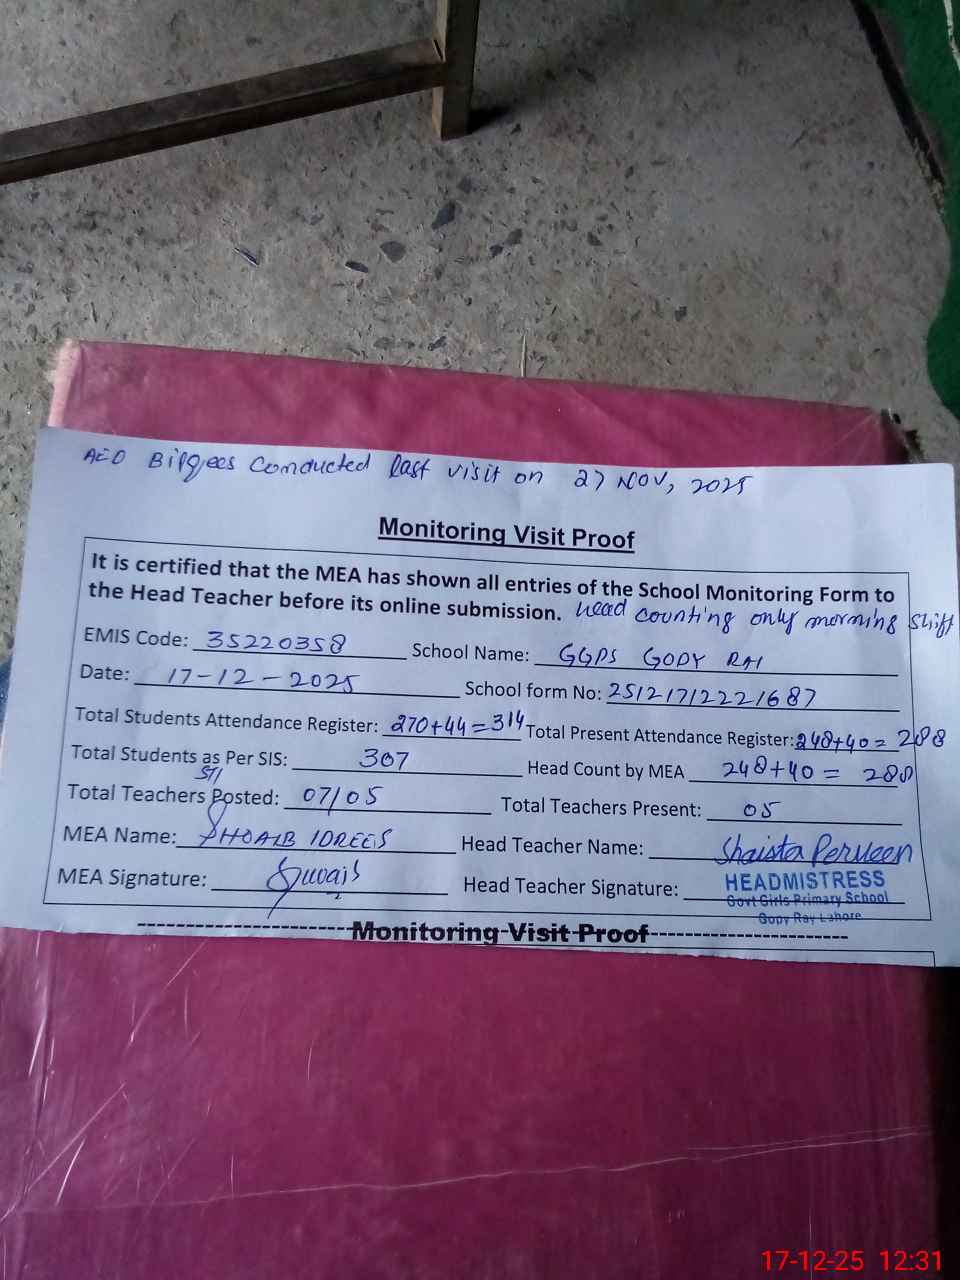 AEO Bilqees Conducted last visit on 27 Nov, 2025
Monitoring Visit Proof
It is certified that the MEA has shown all entries of the School Monitoring Form to
the Head Teacher before its online submission. head counting only morning shift
EMIS Code: 35220358 School Name: GGPS GODY RAI
Date: 17-12-2025 School form No: 25121712221687
Total Students Attendance Register: 270+44=314 Total Present Attendance Register: 248+40=288
Total Students as Per SIS: 307 Head Count by MEA 248+40= 288
STI
Total Teachers Posted: 07/05 Total Teachers Present: 05
MEA Name: SHOAIB IDREES Head Teacher Name: Shaista Perveen
MEA Signature: Head Teacher Signature: HEADMISTRESS
Govt Girls Primary School
Gopy Ray Lahore
Monitoring Visit Proof
17-12-25 12:31